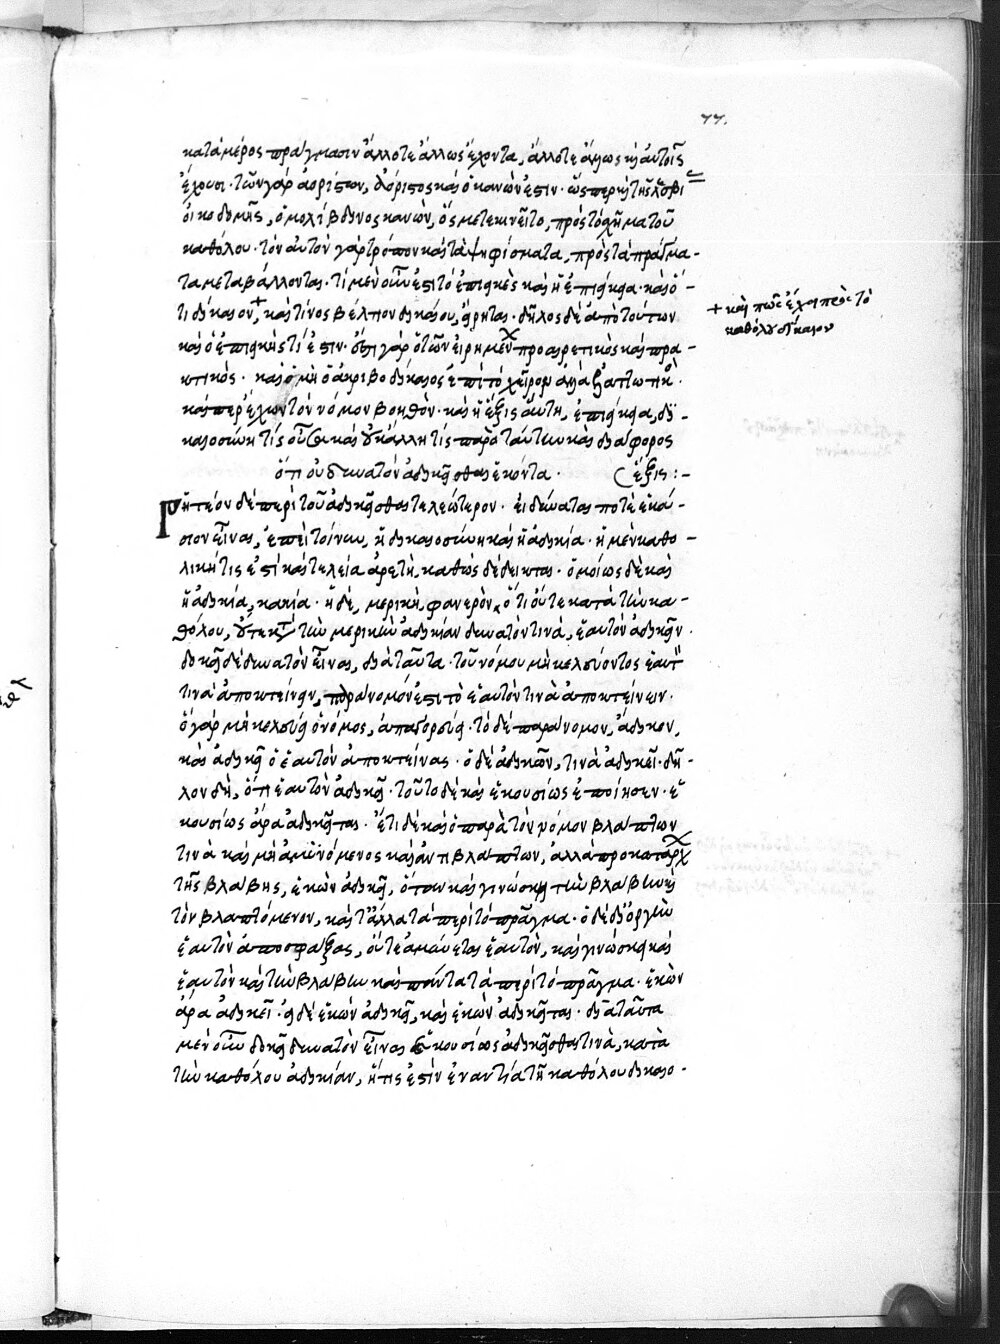 77.
κατὰ μέρος πράγμασιν ἄλλοτε ἄλλως ἔχοντα, ἄλλοτε ἄλλως καὶ αὐτοῖς
ἔχουσι· τῶν γὰρ ἀορίστων, ἀόριστος καὶ ὁ κανών ἐστιν· ὥσπερ καὶ τῆς λεσβί
οἰκοδομῆς, ὁ μολίβδινος κανών, ὃς μετεκινεῖτο, πρὸς τὸ σχῆμα τοῦ
καθόλου· τὸν αὐτὸν γὰρ τρόπον καὶ τὰ ψηφίσματα, πρὸς τὰ πράγμα-
τα μεταβάλλονται· τί μὲν οὖν ἐστι τὸ ἐπιεικὲς καὶ ἡ ἐπιείκεια· καὶ ὅ-
τι δίκαιον, + καὶ τίνος βέλτιον δικαίου, εἴρηται· δῆλος δὲ ἀπὸ τούτων
καὶ ὁ ἐπιεικὴς τί ἐστιν· ὅτι γὰρ ὁ τῶν εἰρημέν προαιρετικὸς καὶ πρα-
κτικός· καὶ ὁ μὴ ὁ ἀκριβοδίκαιος ἐπὶ τὸ χεῖρον ἀλλὰ ἐλαττωτικὸ.
καίπερ ἔχων τὸν νόμον βοηθόν· καὶ ἡ ἕξις αὕτη, ἐπιείκεια, δι-
καιοσύνη τίς οὖσα καὶ οὐκ ἄλλη τίς παρὰ ταύτην καὶ διάφορος
ὅτι οὐ δυνατὸν ἀδικεῖσθαι ἑκόντα. (ἕξις:-
Ῥητέον δὲ περὶ τοῦ ἀδικεῖσθαι τελεώτερον· εἰ δύναταί ποτε ἑκού-
σιον εἶναι, ἐπεὶ τοίνυν, ἡ δικαιοσύνη καὶ ἡ ἀδικία· ἡ μὲν καθο-
λική τις ἐστὶ καὶ τελεία ἀρετή, καθὼς δέδεικται· ὁμοίως δὲ καὶ
ἡ ἀδικία, κακία· ἡ δὲ, μερική, φανερὸν, ὅτι οὔτε κατὰ τὴν κα-
θόλου, οὔτε κατὰ τὴν μερικὴν ἀδικίαν δυνατόν τινὰ, ἑαυτὸν ἀδικεῖν.
δοκεῖ δὲ δυνατὸν εἶναι, διὰ ταῦτα· τοῦ νόμου μὴ κελεύοντος ἑαυτ
τινὰ ἀποκτείνειν, παράνομόν ἐστι τὸ ἑαυτόν τινὰ ἀποκτείνειν·
ὃ γὰρ μὴ κελεύει ὁ νόμος, ἀπαγορεύει· τὸ δὲ παράνομον, ἄδικον,
καὶ ἀδικεῖ ὁ ἑαυτὸν ἀποκτείνας· ὁ δὲ ἀδικῶν, τινὰ ἀδικεῖ· δῆ-
λον δὴ, ὅτι ἑαυτὸν ἀδικεῖ· τοῦτο δὲ καὶ ἑκουσίως ἐποίησεν· ἑ-
κουσίως ἄρα ἀδικεῖται· ἔτι δὲ καὶ ὁ παρὰ τὸν νόμον βλάπτων
τινὰ καὶ μὴ ἀμυνόμενος καὶ ἀντιβλάπτων, ἀλλὰ προκατάρχ
τῆς βλάβης, ἑκὼν ἀδικεῖ, ὅταν καὶ γινώσκῃ τὴν βλάβην ἢ
τὸν βλαπτόμενον, καὶ τἆλλα τὰ περὶ τὸ πρᾶγμα· ὁ δὲ δι' ὀργὴν
ἑαυτὸν ἀποσφάξας, οὔτε ἀμύνεται ἑαυτὸν, καὶ γινώσκει καὶ
ἑαυτὸν καὶ τὴν βλάβην καὶ πάντα τὰ περὶ τὸ πρᾶγμα· ἑκὼν
ἄρα ἀδικεῖ· εἰ δὲ ἑκὼν ἀδικεῖ, καὶ ἑκὼν ἀδικεῖται· διὰ ταῦτα
μὲν οὖν δοκεῖ δυνατὸν εἶναι ἑκουσίως ἀδικεῖσθαι τινὰ, κατὰ
τὴν καθόλου ἀδικίαν, ἥτις ἐστὶν ἐναντία τῇ καθόλου δικαιο-
+ καὶ πῶς ἔχει πρὸς τὸ
καθόλου δίκαιον